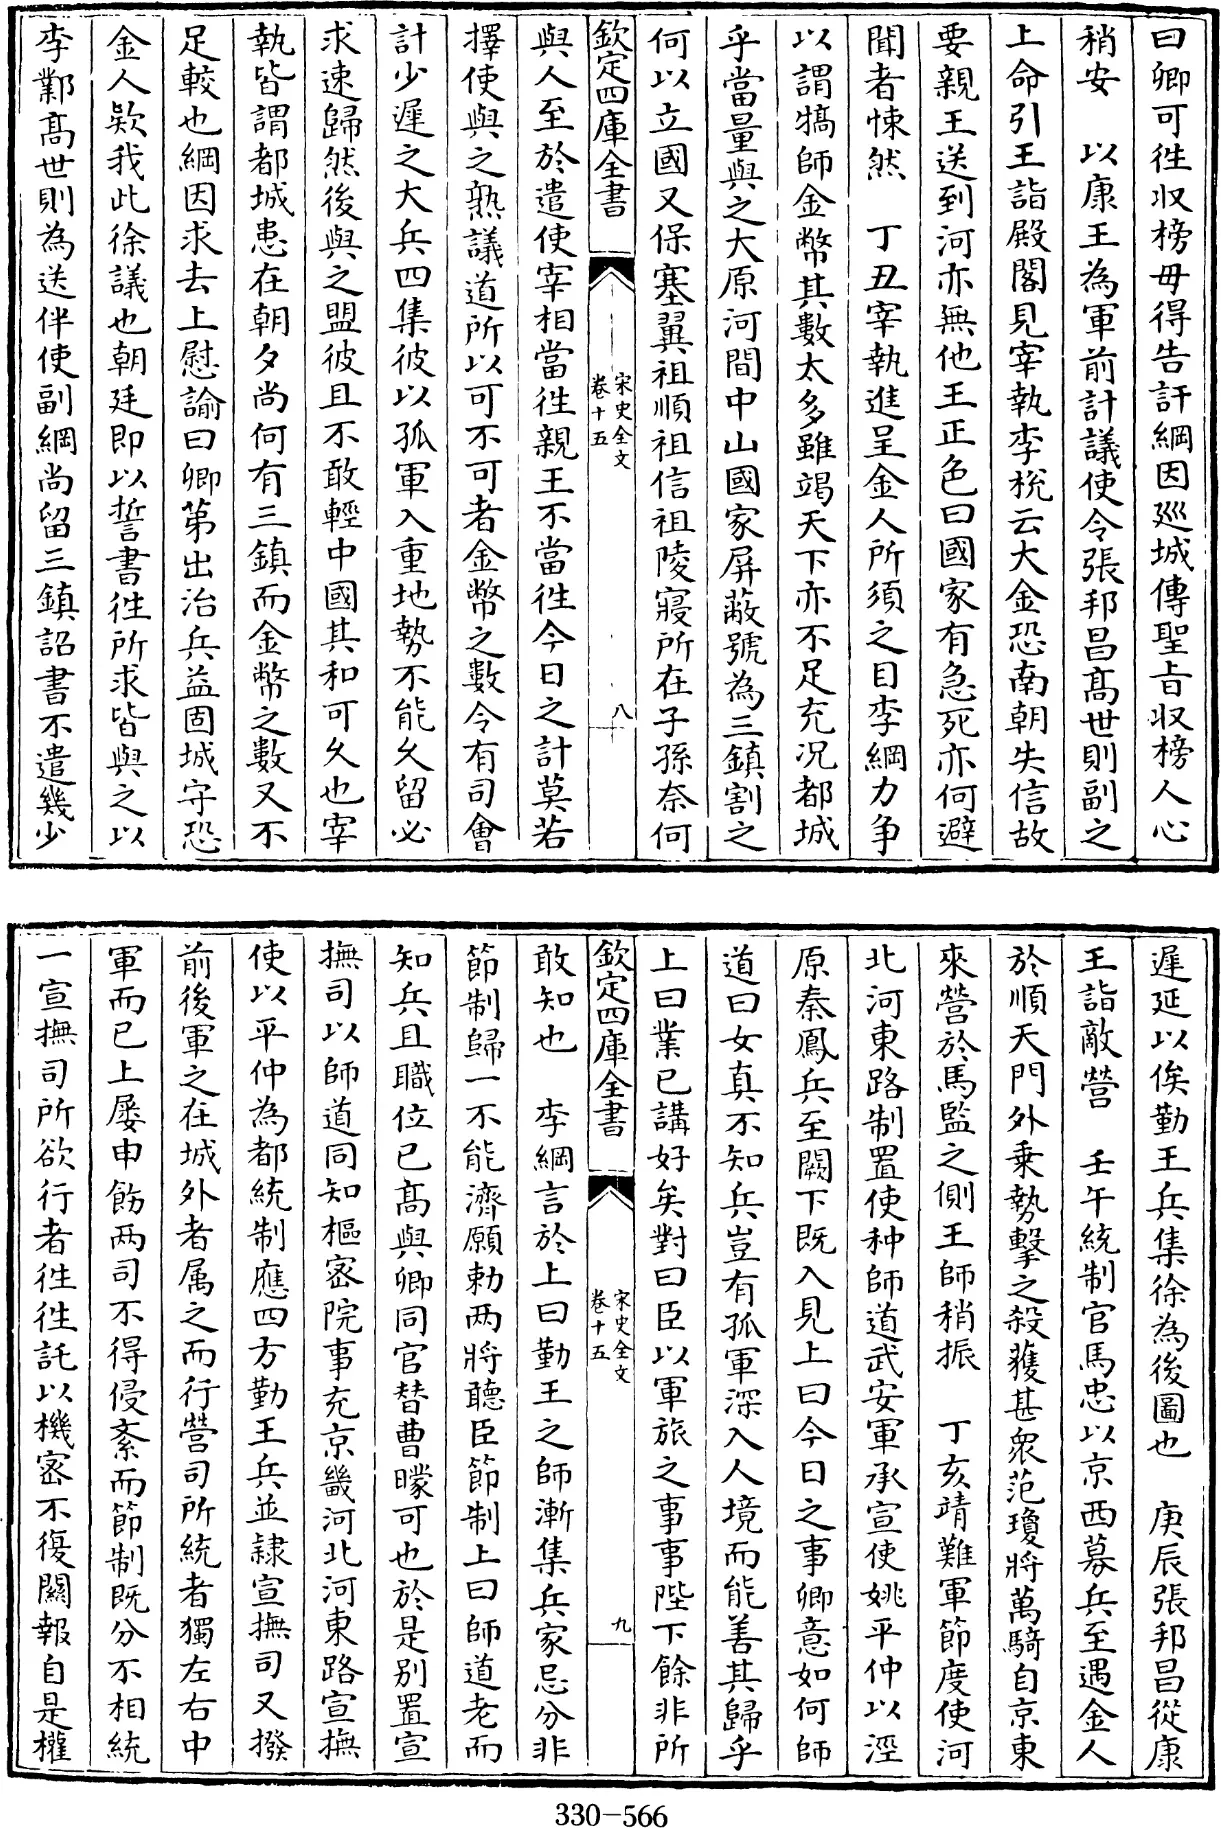 曰卿可徃収榜毋得告訐綱因廵城傳聖㫖収榜人心
稍安　以康王為軍前計議使令張邦昌髙世則副之
上命引王詣殿閣見宰執李梲云大金恐南朝失信故
要親王送到河亦無他王正色曰國家有急死亦何避
聞者悚然　丁丑宰執進呈金人所須之目李綱力争
以謂犒師金幣其數太多雖竭天下亦不足充况都城
乎當量與之大原河間中山國家屏蔽號為三鎮割之
何以立國又保塞翼祖順祖信祖陵寢所在子孫奈何
欽定四庫全書
宋史全文
卷十五
八
與人至於遣使宰相當徃親王不當徃今日之計莫若
擇使與之熟議道所以可不可者金幣之數令有司會
計少遲之大兵四集彼以孤軍入重地勢不能久留必
求速歸然後與之盟彼且不敢輕中國其和可久也宰
執皆謂都城患在朝夕尚何有三鎮而金幣之數又不
足較也綱因求去上慰諭曰卿第出治兵益固城守恐
金人欵我此徐議也朝廷即以誓書徃所求皆與之以
李鄴髙世則為送伴使副綱尚留三鎮詔書不遣幾少
遲延以俟勤王兵集徐為後圖也　庚辰張邦昌從康
王詣敵營　壬午統制官馬忠以京西募兵至遇金人
於順天門外乗勢擊之殺獲甚衆范瓊將萬騎自京東
來營於馬監之側王師稍振　丁亥靖難軍節度使河
北河東路制置使种師道武安軍承宣使姚平仲以涇
原秦鳳兵至闕下既入見上曰今日之事卿意如何師
道曰女真不知兵豈有孤軍深入人境而能善其歸乎
上曰業已講好矣對曰臣以軍旅之事事陛下餘非所
欽定四庫全書
宋史全文
卷十五
九
敢知也　李綱言於上曰勤王之師漸集兵家忌分非
節制歸一不能濟願勅两將聽臣節制上曰師道老而
知兵且職位已髙與卿同官替曹曚可也於是别置宣
撫司以師道同知樞宻院事充京畿河北河東路宣撫
使以平仲為都統制應四方勤王兵並隸宣撫司又撥
前後軍之在城外者属之而行營司所統者獨左右中
軍而已上屡申飭两司不得侵紊而節制既分不相統
一宣撫司所欲行者徃徃託以機宻不復關報自是權
330-566